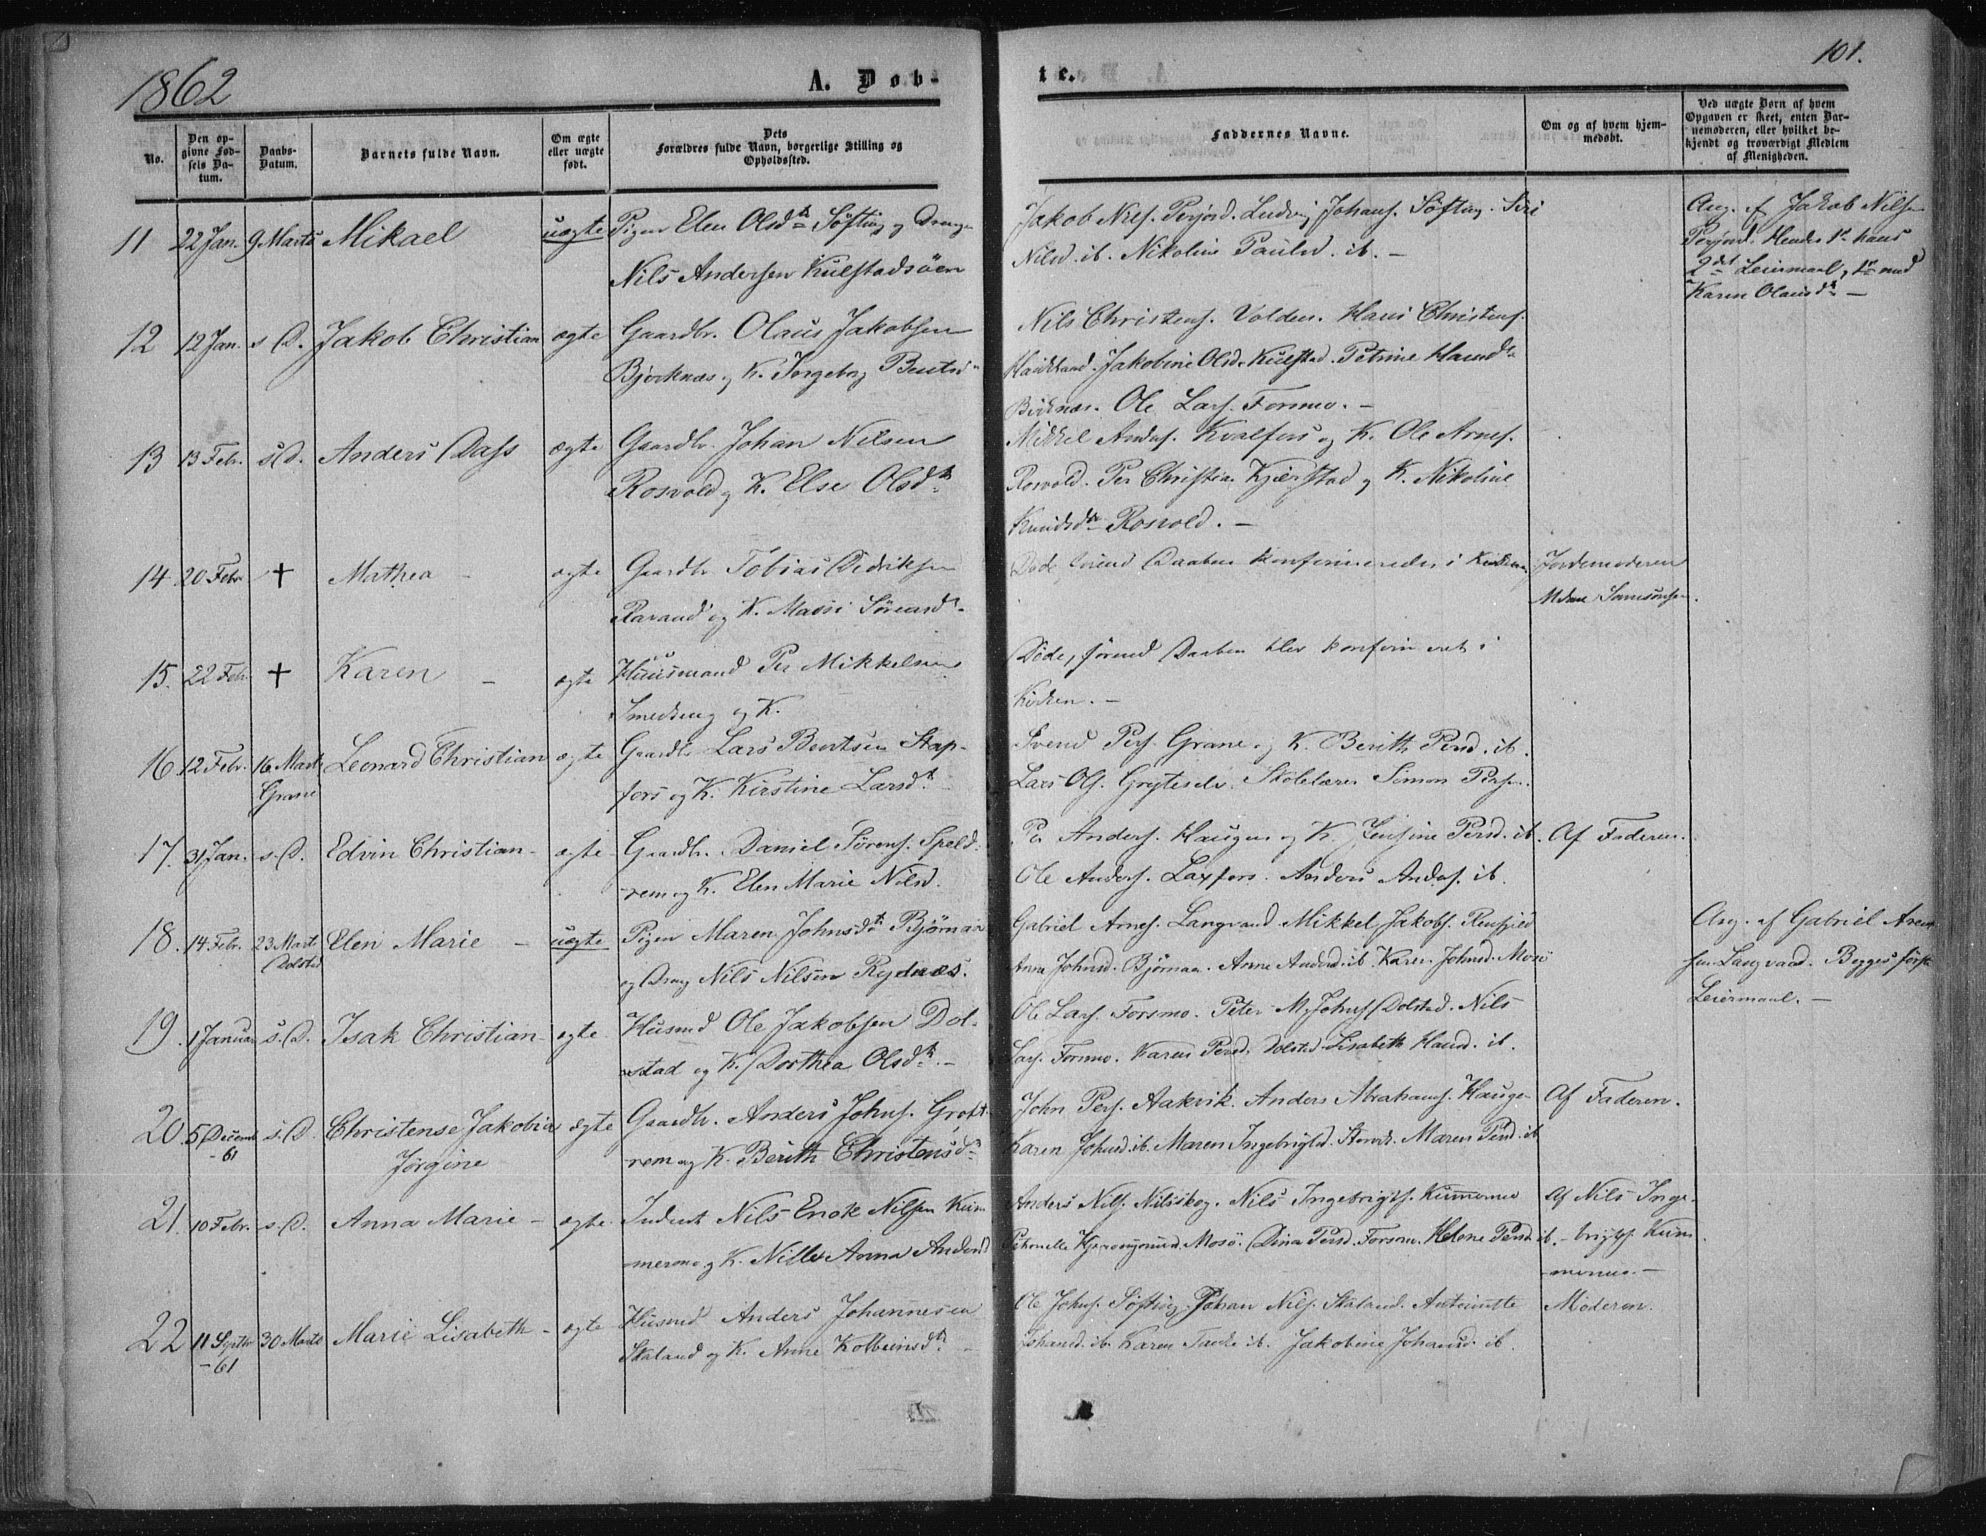 1862
A. Døb-
te.
101.
No.
Den op-
givne Fød-
sels Da-
tum.
Daabs-
Datum.
Barnets fulde Navn.
Om ægte
eller uægte
født.
Dets
Forældres fulde Navn, borgerlige Stilling og
Opholdssted.
Faddernes Navne.
Om og af hvem hjem-
medøbt.
Ved uægte Børn af hvem
Opgaven er skeet, enten Bar-
nemoderen, eller hvilket be-
kjendt og troværdigt Medlem
af Menigheden.
11 22 Jan. 9 Marts Mikael uægte Pigen Elen Olsdtr Søfting og Dreng
Nils Andersen Kulstadsøen
Jakob Nils. Perjord. Ludvig Johans. Søfting. Siri
Nilsd. ib. Nikoline Paulsd. ib. –
Ang. af Jakob Nilsen
Perjord. Hendes 1ste hans
2det Leiermaal, 1ste med
Karen Olausdtr –
12 12 Jan. s. D. Jakob Christian ægte Gaardbr. Olaus Jakobsen
Bjørknæs og K. Ingeborg Bentsd
Nils Christens. Volden. Hans Christens.
Jakobine Olsd. Kulstad. Petrine Hansd
Ole Lars. Formo. –
13 13 Febr. s. D. Anders Dass ægte Gaardbr. Johan Nilsen
Rosvold og K. Else Olsdtr
Mikkel Anders. Kvalfors og K. Ole Arnes.
Rosvold. Per Christian Kjerstad og K. Nikoline
Knudsdtr Rosvold. –
14 20 Febr. † Mathea – ægte Gaardbr. Tobias Didriksen
og K. Massi Sørensd
Døde førend Daaben konfirmeredes i Kirken
Jordemoderen
Samsonsen.
15. 22 Feb. † Karen – ægte Huusmand Per Mikkelsen
Smedseng og K.
Døde, førend Daaben blev konfirmeret i
Kirken. –
16 12 Febr. 16 Marts Leonard Christian ægte Gaardb. Lars Bentsen Stap-
Grane
fors og K. Kirstine Larsdtr
Svend Pers. Grane og K. Berith Persd. ib.
Lars Ols. Skolelærer Simon Persen.
17. 31 Jan. s. D. Edvin Christian – ægte Gaardbr. Daniel Sørens. Speld-
rem og K. Elen Marie Nilsd.
Per Anders. Haugen og K. Jensine Persd. ib.
Ole Anders. Laxfors. Anders Anders. ib.
Af Faderen.
18. 14 Febr. 23 Marts Elen Marie – uægte Pigen Maren Johnsdtr Bjørnaa
Dolstad
og Dreng Nils Nilsen Rydnæs.
Gabriel Arnes. Langvand Mikkel Jakobs. Renfjeld
Anne Johnsd. Bjørnaa. Anne Andersd. ib. Karen Johnsd. Mosø
Ang. af Gabriel Arne-
sen Langvand. Begges første
Leiermaal. –
19. 1 Januar s. D. Isak Christian – ægte Husmd Ole Jakobsen Dol-
stad og K. Dorthea Olsdtr –
Ole Lars. Forsmo. Peter M. Johns. Dolstad. Nils
Lars. Formo. Karen Persd. Dolstad. Lisabeth Hansd. ib.
20 5 Decemb s. D. Christense Jakobia ægte Gaardbr. Anders Johns. Grøft-
–61
Jørgine
rem og K. Berith Christensd
John Pers. Aakvik. Anders Abrahams. Haugen
Karen Johnsd. ib. Maren Ingebrigtsd. Maren Persd. ib
Af Faderen.
21. 10 Febr. s. D. Anna Marie – ægte Inderst Nils Enok Nilsen Kum
mermo og K. Nille Anna Andersd
Anders Nils. Nilsskog. Nils Ingebrigts. Kummermo
Petronelle Mosø. Dina Persd. Forsmo. Helene Persd. ib.
Af Nils Inge-
– brigts. Kum
mermo. –
22 11 Septbr 30 Marts Marie Lisabeth – ægte Husmd Anders Johannesen
–61
Skaland og K. Anne Kolbeinsdtr –
Ole Johns. Søfting. Johan Nils. Skaland. Antonette
Johansd. ib. Karen ib. Jakobine Johansd. ib.
Moderen.